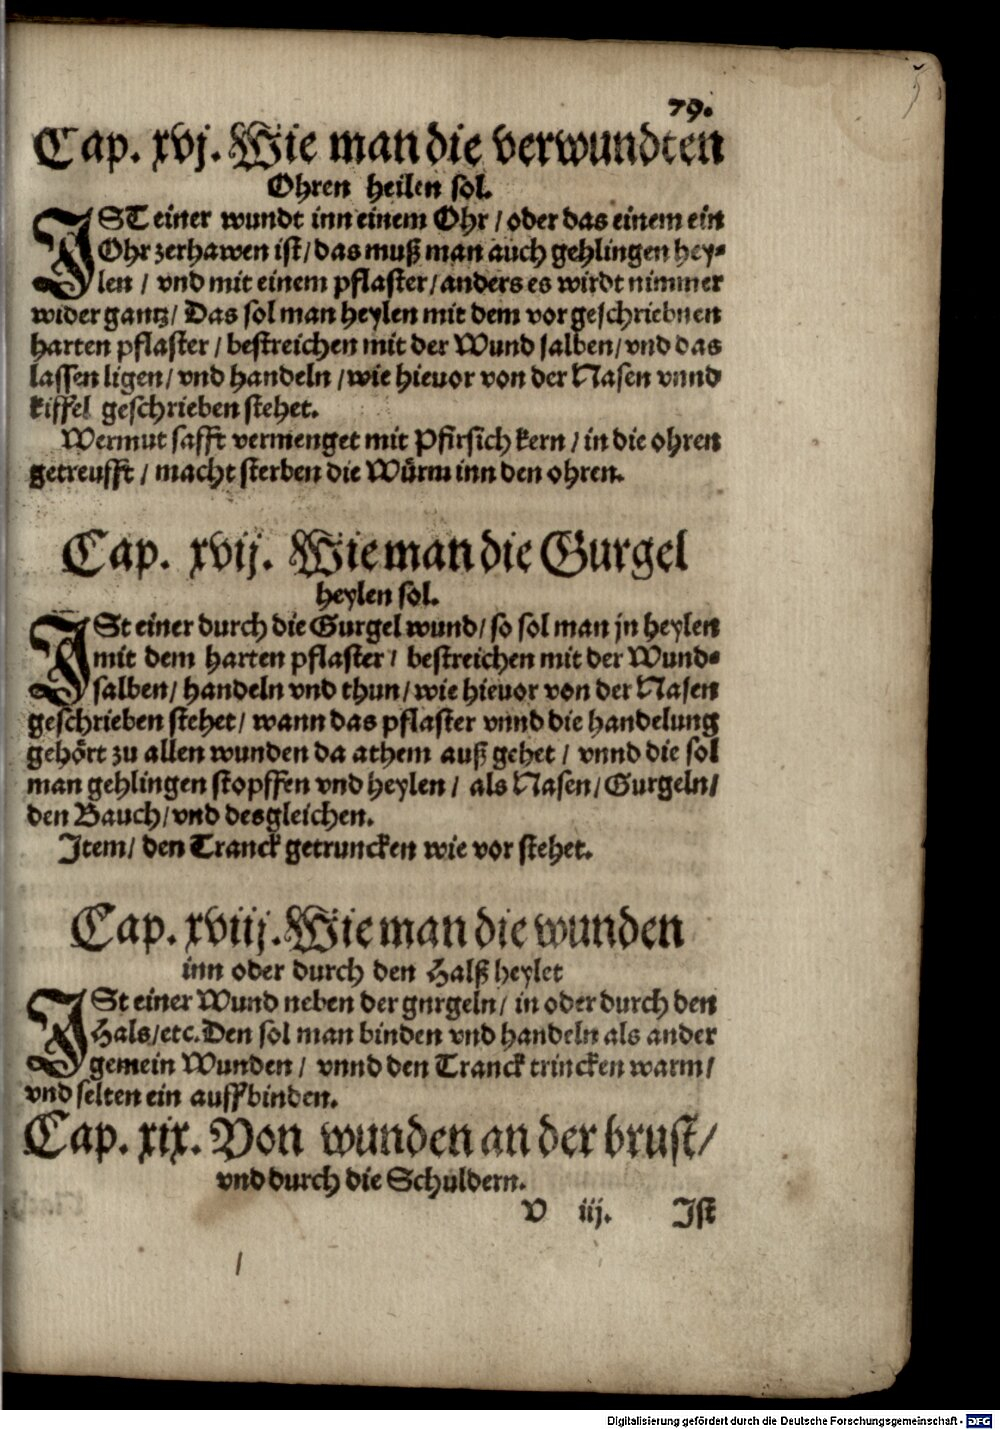 79.
Cap. xvj. Wie man die verwundten
Ohren heilen sol.
JST einer wundt inn einem Ohr / oder das einem ein
Ohr zerhawen ist / das muß man auch gehlingen hey⸗
len / vnd mit einem pflaster / anders es wirdt nimmer
wider gantz / Das sol man heylen mit dem vorgeschriebnen
harten pflaster / bestreichen mit der Wund salben / vnd das
lassen ligen / vnd handeln / wie hieuor von der Nasen vnnd
kiffel geschrieben stehet.
Wermut safft vermenget mit Pfirsich kern / in die ohren
getreufft / macht sterben die Wuͤrm inn den ohren.
Cap. xvij. Wie man die Gurgel
heylen sol.
JSt einer durch die Gurgel wund / so sol man jn heylen
mit dem harten pflaster / bestreichen mit der Wund⸗
salben / handeln vnd thun / wie hieuor von der Nasen
geschrieben stehet / wann das pflaster vnnd die handelung
gehoͤrt zu allen wunden da athem auß gehet / vnnd die sol
man gehlingen stopffen vnd heylen / als Nasen / Gurgeln /
den Bauch / vnd desgleichen.
Jtem / den Tranck getruncken wie vor stehet.
Cap. xviij. Wie man die wunden
inn oder durch den Halß heylet
JSt einer Wund neben der gurgeln / in oder durch den
Hals / etc. Den sol man binden vnd handeln als ander
gemein Wunden / vnnd den Tranck trincken warm /
vnd selten ein auffbinden.
Cap. xix. Von wunden an der brust /
vnd durch die Schuldern.
V iij. Jst
Digitalisierung gefördert durch die Deutsche Forschungsgemeinschaft - DFG